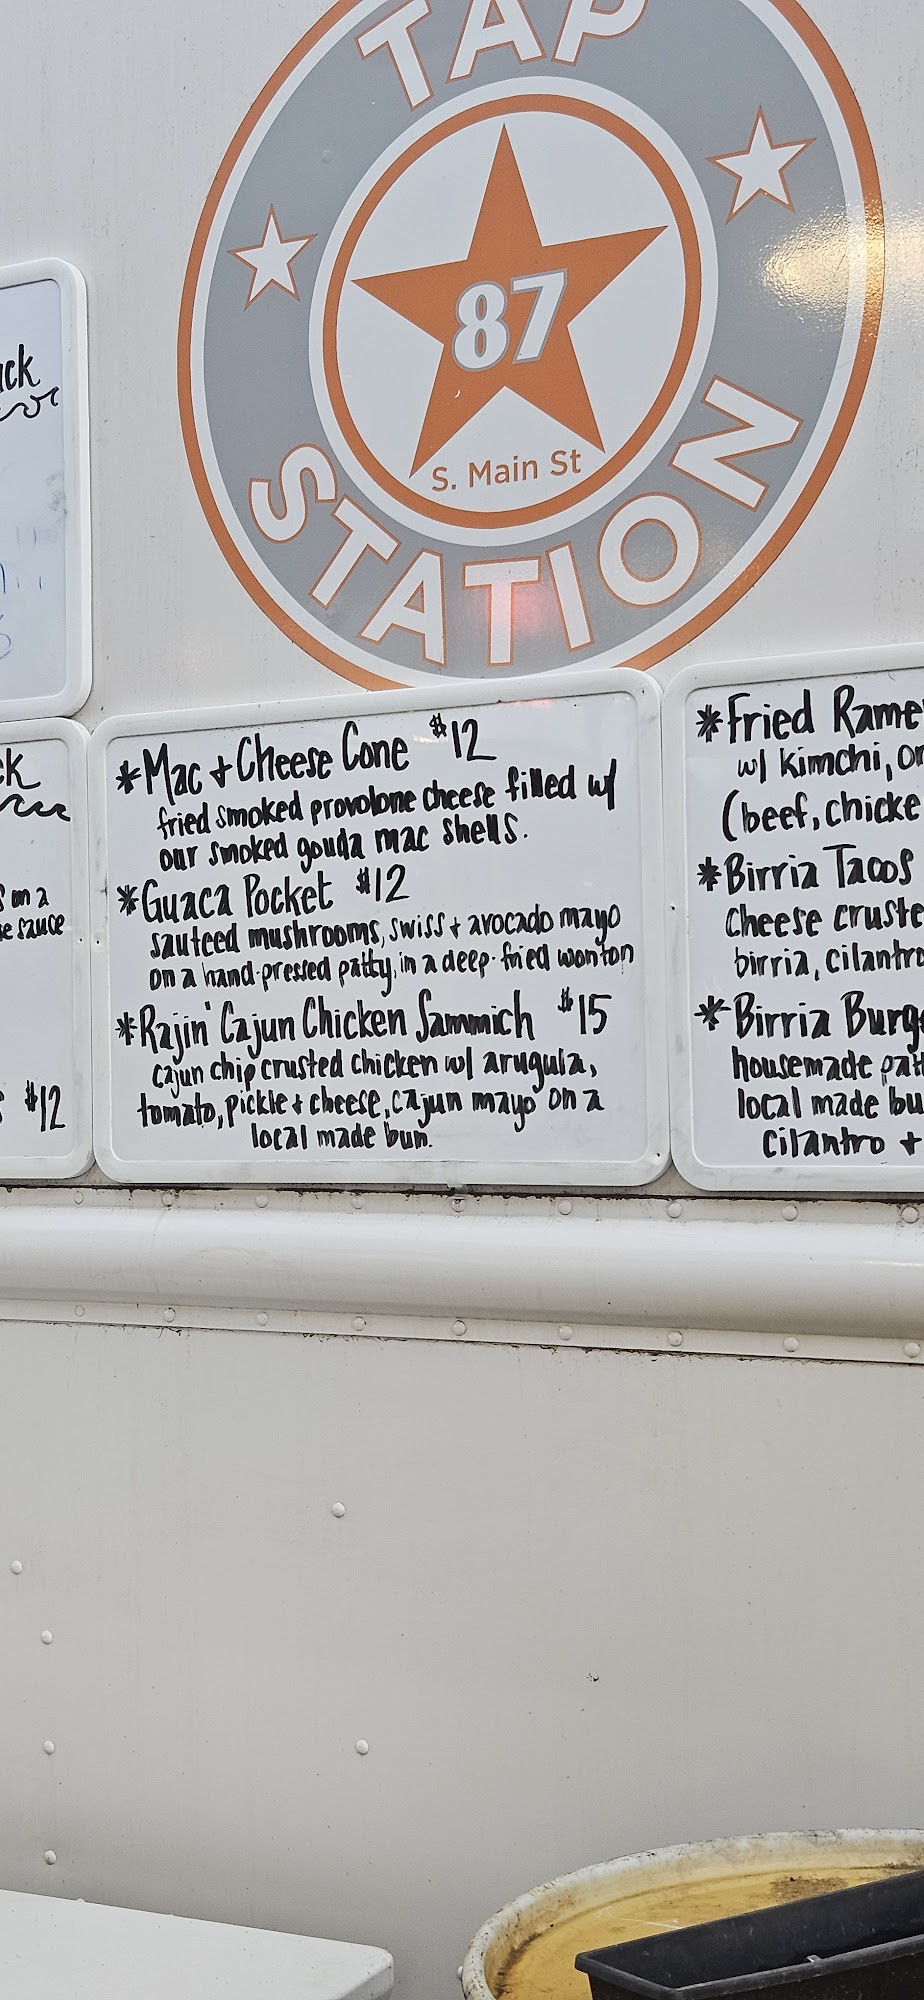 TAP
87
S. Main St
STATION
*Mac + Cheese Cone $12
fried smoked provolone cheese filled w/
our smoked gouda mac shells.
*Guaca Pocket $12
sauteed mushrooms, swiss + avocado mayo
on a hand-pressed patty, in a deep-fried wonton
*Rajin' Cajun Chicken Sammich $15
cajun chip crusted chicken w/ arugula,
tomato, pickle + cheese, cajun mayo on a
local made bun.
*Fried
w/ kimchi,
(beef,
*Birria Tacos
cheese
birria,
*Birria
housemade
local made
cilantro +
on a
sauce
$12